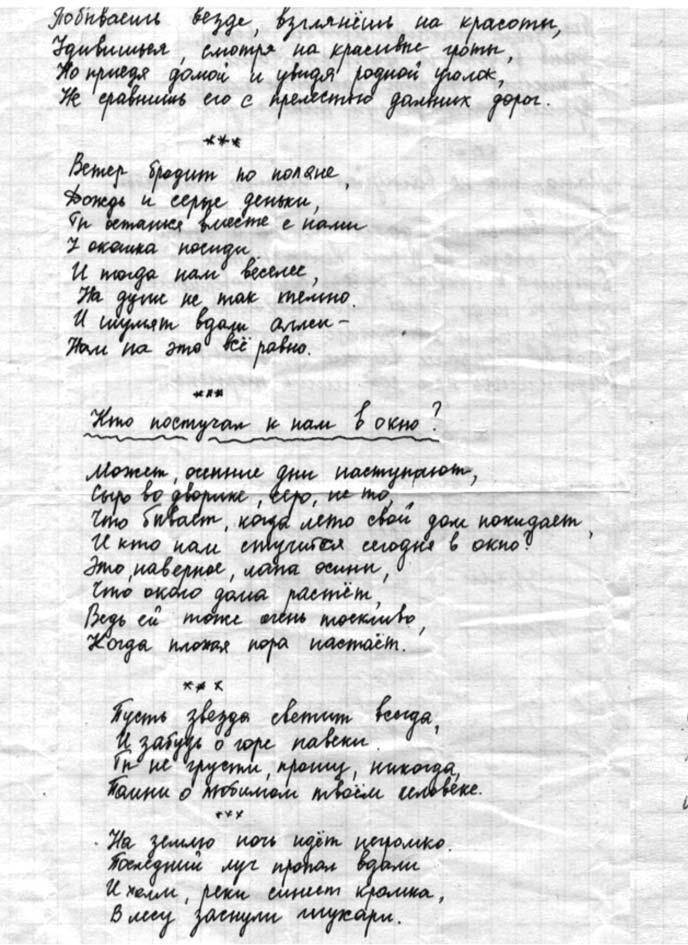 Побываешь везде, взглянёшь на красоты,
Удивишься, смотря на красивые гроты,
Но приедя домой и увидя родной уголок,
Не сравнишь его с прелестью дальних дорог.
***
Ветер бродит по поляне,
Дождь и серые деньки,
Ты останься вместе с нами
У окошка посиди
И тогда нам веселее,
На душе не так темно.
И шумят вдали аллеи –
Нам на это всё равно.
***
Кто постучал к нам в окно?
Может, осенние дни наступают,
Сыро во дворике, серо, не то,
Что бывает, когда лето свой дом покидает,
И кто нам стучится сегодня в окно?
Это, наверное, лапа осины,
Что около дома растёт,
Ведь ей тоже очень тоскливо,
Когда плохая пора настаёт.
***
Пусть звезда светит всегда,
И забудь о горе навеки.
Ты не грусти, прошу, никогда,
Помни о любимом твоём человеке.
***
На землю ночь идёт негромко.
Последний луч пропал вдали
И холм, реки синеет кромка,
В лесу заснули глухари.